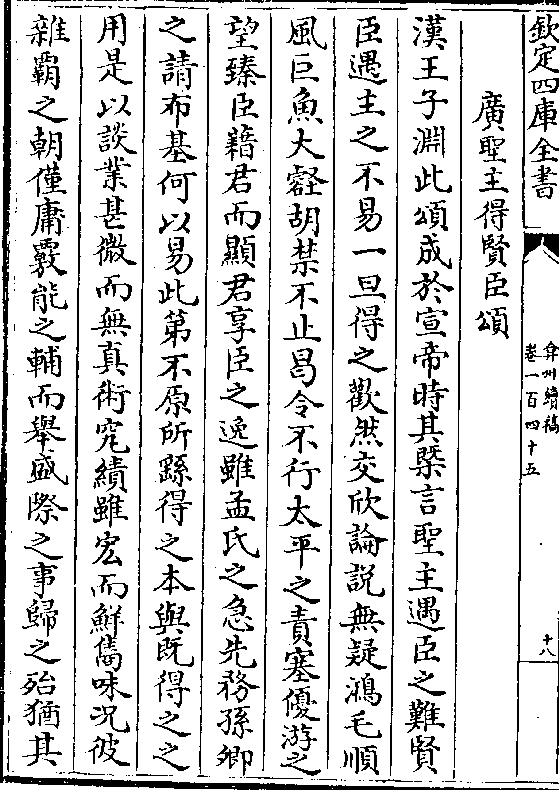 欽定四庫全書
弇州續稿
卷一百四十五
十八
廣聖主得賢臣頌
漢王子淵此頌成於宣帝時其槩言聖主遇臣之難賢
臣遇主之不易一旦得之歡然交欣論說無疑鴻毛順
風巨魚大壑胡禁不止曷令不行太平之責塞優游之
望臻臣藉君而顯君享臣之逸雖孟氏之急先務孫卿
之請布基何以易此第不原所繇得之本與既得之之
用是以談業甚微而無真術究績雖宏而鮮雋味況彼
雜霸之朝僅庸覈能之輔而舉盛際之事歸之殆猶其